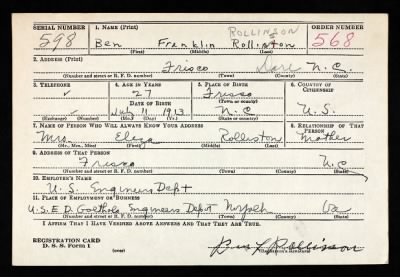 SERIAL NUMBER 1. NAME (Print) ROLLINSON ORDER NUMBER
598 Ben Franklin Rolliston 568
(First) (Middle) (Last)
2. ADDRESS (Print)
Frisco Dare N.C.
(Number and street or R. F. D. number) (Town) (County) (State)
3. TELEPHONE 4. AGE IN YEARS 5. PLACE OF BIRTH 6. COUNTRY OF CITIZENSHIP
27 Frisco
DATE OF BIRTH (Town or county)
July 11 1913 N.C. U.S.
(Exchange) (Number) (Mo.) (Day) (Yr.) (State or country)
7. NAME OF PERSON WHO WILL ALWAYS KNOW YOUR ADDRESS 8. RELATIONSHIP OF THAT PERSON
Mrs. Eliza Rolliston Mother
(Mr., Mrs., Miss) (First) (Middle) (Last)
9. ADDRESS OF THAT PERSON
Frisco N.C.
(Number and street or R. F. D. number) (Town) (County) (State)
10. EMPLOYER'S NAME
U.S. Engineers Dept
11. PLACE OF EMPLOYMENT OR BUSINESS
U.S.E.D. Goethols Engineers Depot Norfolk Va
(Number and street or R. F. D. number) (Town) (County) (State)
I AFFIRM THAT I HAVE VERIFIED ABOVE ANSWERS AND THAT THEY ARE TRUE.
REGISTRATION CARD
D. S. S. Form 1 Ben F. Rollinson
(over) (Registrant's signature)